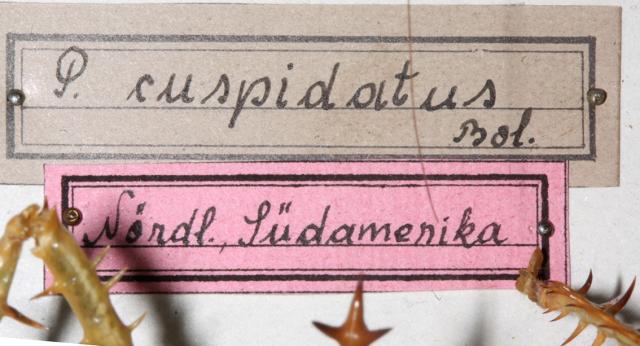 P. cuspidatus
Bol.
Nördl. Südamerika